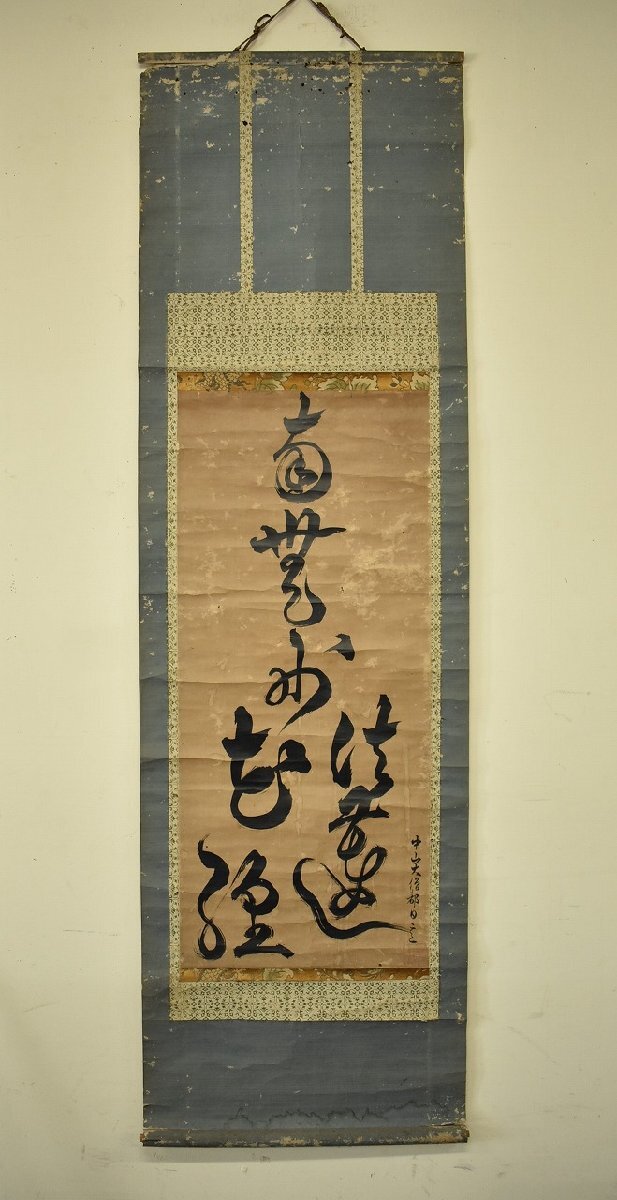 南無妙法蓮華経
中山大僧都日